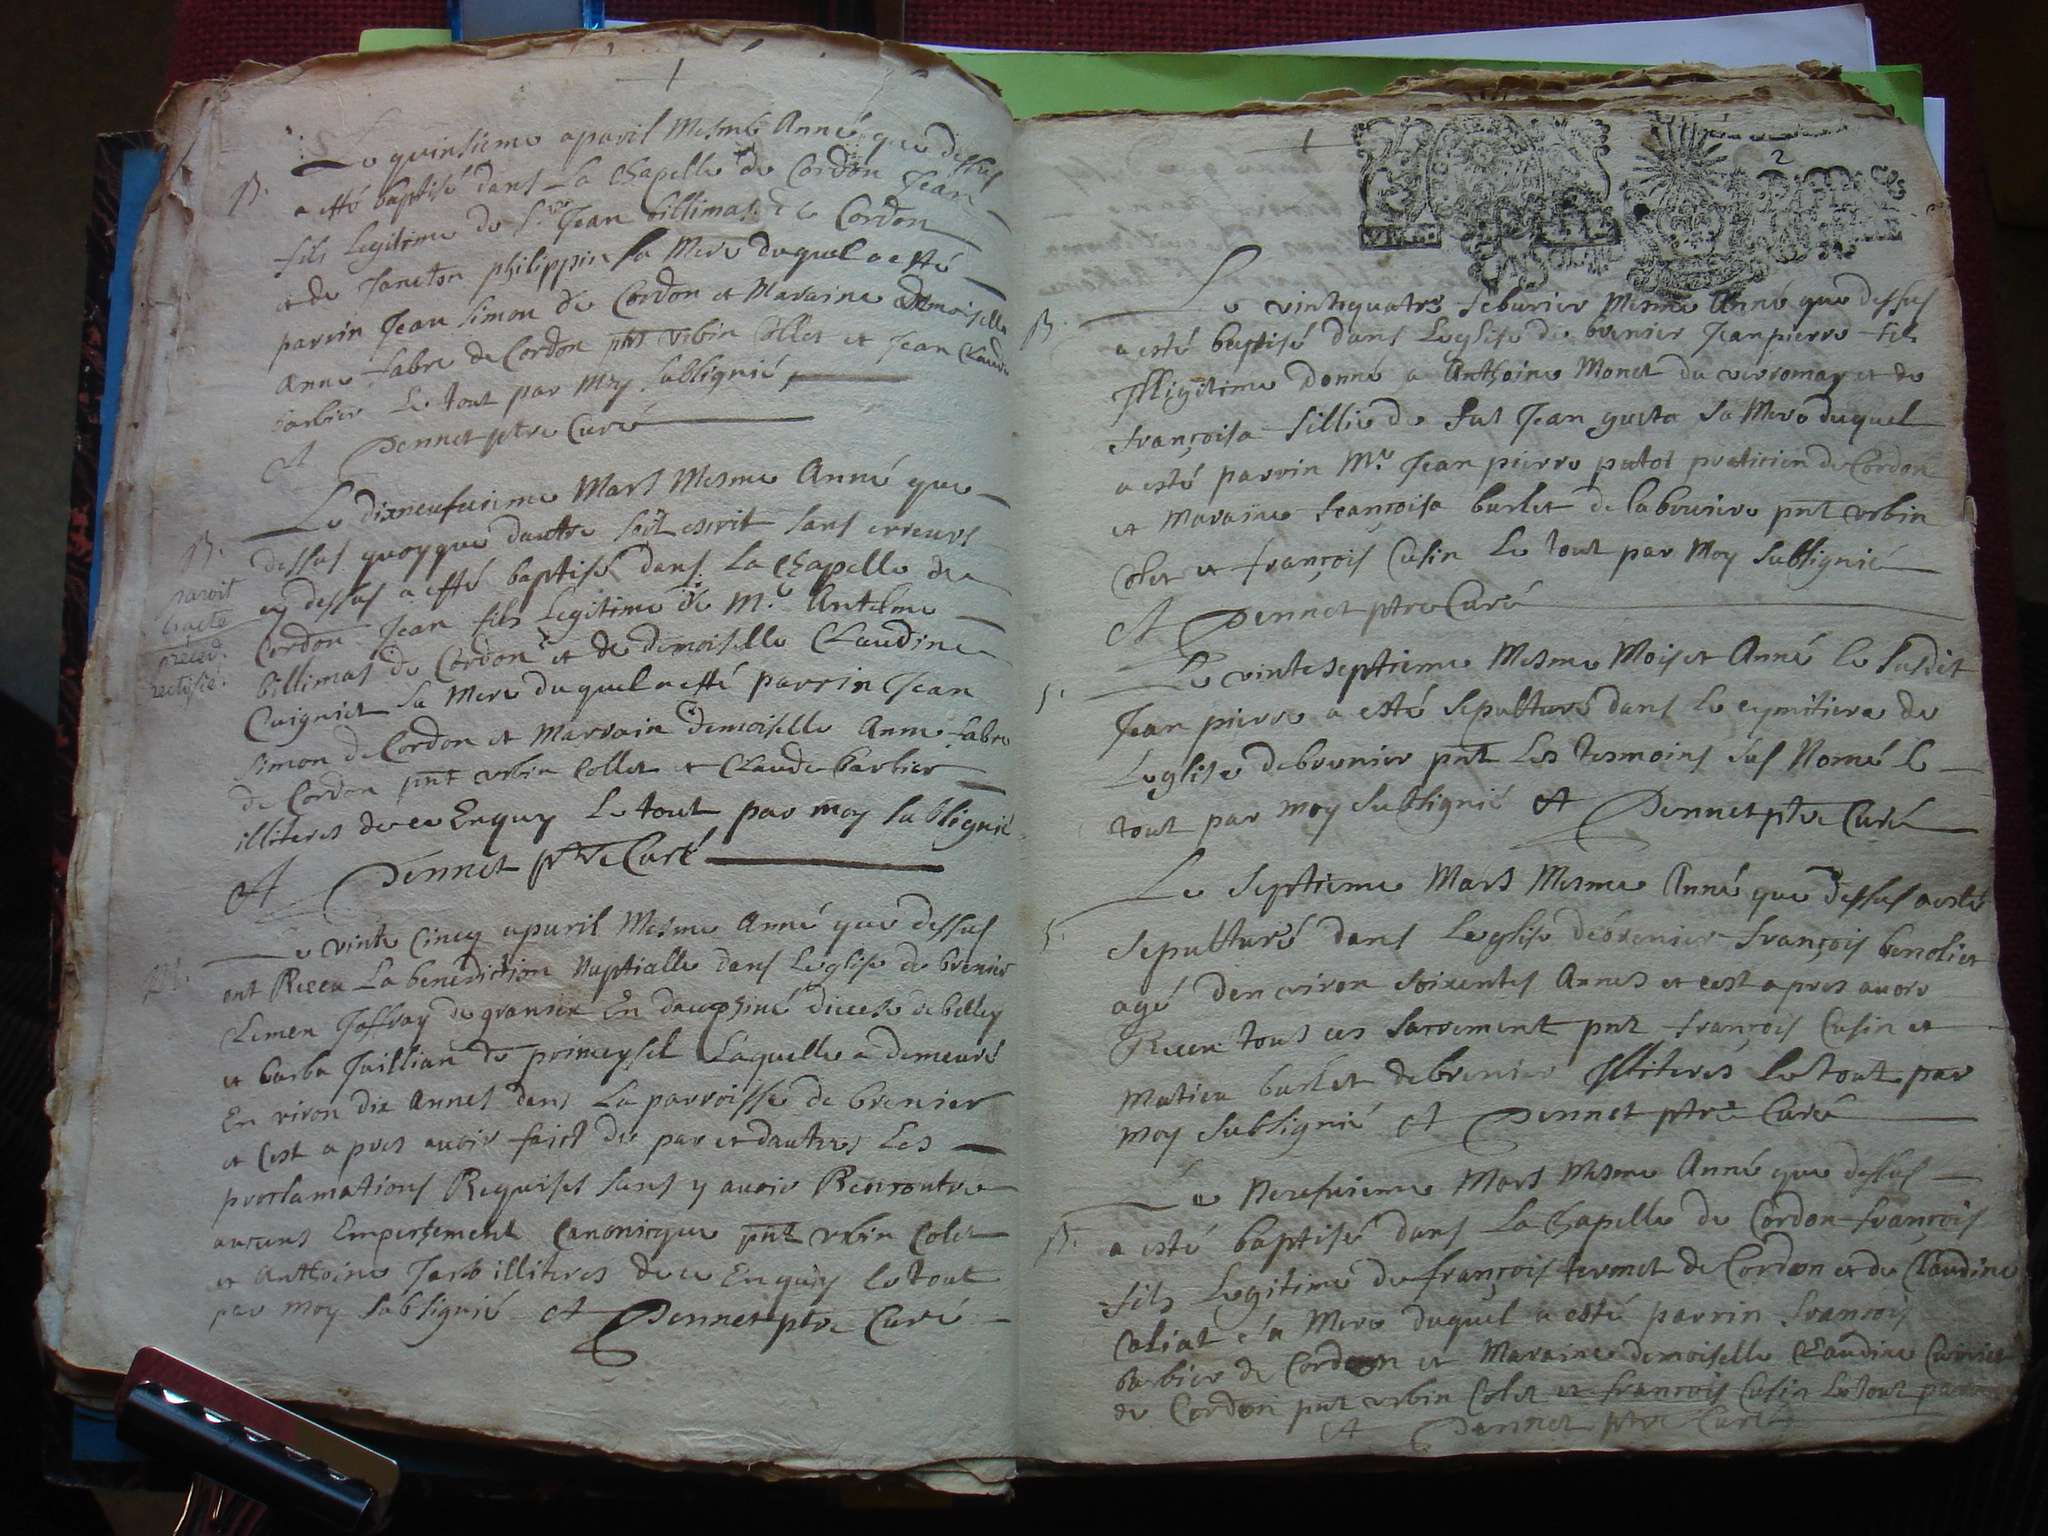 Le quinsieme apvril Mesme Année que dessus
B.
a esté baptisé dans La Chapelle de Cordon Jean
fils Legitime de Sr Jean billimas de Cordon
et de Janeton philippin sa Mere duquel a esté
parrin Jean Simon de Cordon et Maraine demoiselle
Anne fabre de Cordon pnts Urbin Collet et Jean Claude
barbier Le tout par Moy Subsignié
A Pennet ptre Curé
Le dixneufvieme Mars Mesme Anné que
B.
dessus quoyque dautre soit escrit sans erreurs
cy dessus a esté baptisé dans La Chapelle de
paroit
l'acte
précéd.
rectifié.
Cordon Jean fils Legitime de Mr. Antelme
billimas de Cordon et de demoiselle Claudine
Cuigniet sa Mere duquel a esté parrin Jean
Simon de Cordon et Marrain demoiselle Anne fabre
de Cordon pnt Urbin Collet et Claude barbier
illiteres de ce Enquy Le tout par moy Subsignié
A Pennet ptre Curé
Le vinte cincq apvril Mesme Anné que dessus
M.
ont Receu La benediction Nuptialle dans Leglise de brenier
Clemen Joffray de granieu En dauphiné diocese de belley
et barba Juillian de primeysel Laquelle a demeuré
En viron dix Annes dans La parroisse de brenier
et Cest a pres avoir faict de par et dautres Les
proclamations Requises sans y avoir Rencontre
aucuns Empeschement Canonicque pnt Urbin Colet
et Anthoine Jarb illiteres de ce Enquis le tout
par moy Subsignié A Pennet ptre Curé
2
Le vintequatre feburier Mesme Anné que dessus
B.
a esté baptisé dans Leglise de brenier Jeanpierre fils
Illigitime donné a Anthoine Monet du verromay et de
Françoisa fillie de fut Jean gusta sa Mere duquel
a esté parrin Mr. Jean pierre putot praticien de Cordon
et Maraine Françoisa burlet de labruiere pnt Urbin
Colet et françois Cusin Le tout par Moy Subsignié
A Pennet ptre Curé
Le vinteseptieme Mesme Mois et Anné le susdit
S.
Jean pierre a esté sepulturé dans le cymitiere de
Leglise debrenier pnt Les tesmoins sus Nomé le
tout par moy subsignié A Pennet ptre Curé
Le Septieme Mars Mesme Anné que dessus a esté
S.
sepulturé dans Leglise debrenier françois benoliet
agé denviron soixentes Annes et cest apres avoir
Receu tous ces sacrement pnt françois Cusin et
Matieu burlet debrenier Illiterés le tout par
moy Subsignié A Pennet ptre Curé
Le Neufvieme Mars Mesme Anné que dessus
B.
a esté baptisé dans La Chapelle de Cordon françois
fils Legitime de françois termet de Cordon et de Claudine
Caliat sa Mere duquel a esté parrin francois
barbier de Cordon et Maraine demoiselle Claudine Cuiniet
de Cordon pnt Urbin Colet et francois Cusin Le tout par
A Pennet ptre Curé